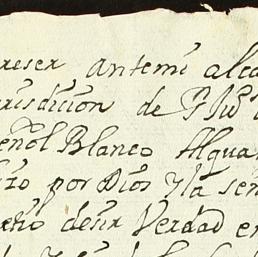 reser antemi alca
risdicion de
eñol Blanco Algua
izo por Dios y la señ
decir Verdad en